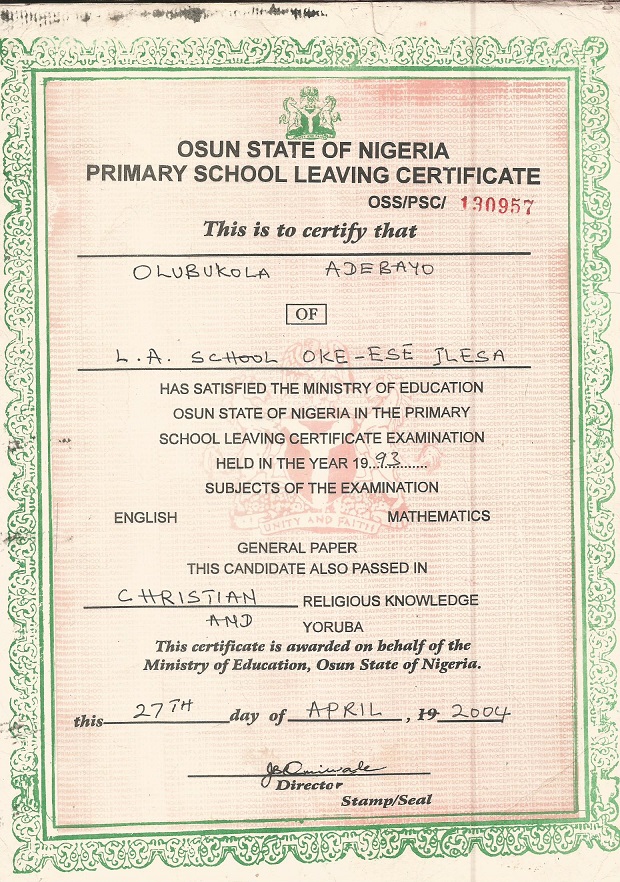 OSUN STATE OF NIGERIA
PRIMARY SCHOOL LEAVING CERTIFICATE
OSS/PSC/ 130957
This is to certify that
OLUBUKOLA ADEBAYO
OF
L.A. SCHOOL OKE-ESE ILESA
HAS SATISFIED THE MINISTRY OF EDUCATION
OSUN STATE OF NIGERIA IN THE PRIMARY
SCHOOL LEAVING CERTIFICATE EXAMINATION
HELD IN THE YEAR 19..93.......
SUBJECTS OF THE EXAMINATION
UNITY AND FAITH
ENGLISH MATHEMATICS
GENERAL PAPER
THIS CANDIDATE ALSO PASSED IN
CHRISTIAN RELIGIOUS KNOWLEDGE
AND YORUBA
This certificate is awarded on behalf of the
Ministry of Education, Osun State of Nigeria.
this 27TH day of APRIL , 19 2004
Director
Stamp/Seal